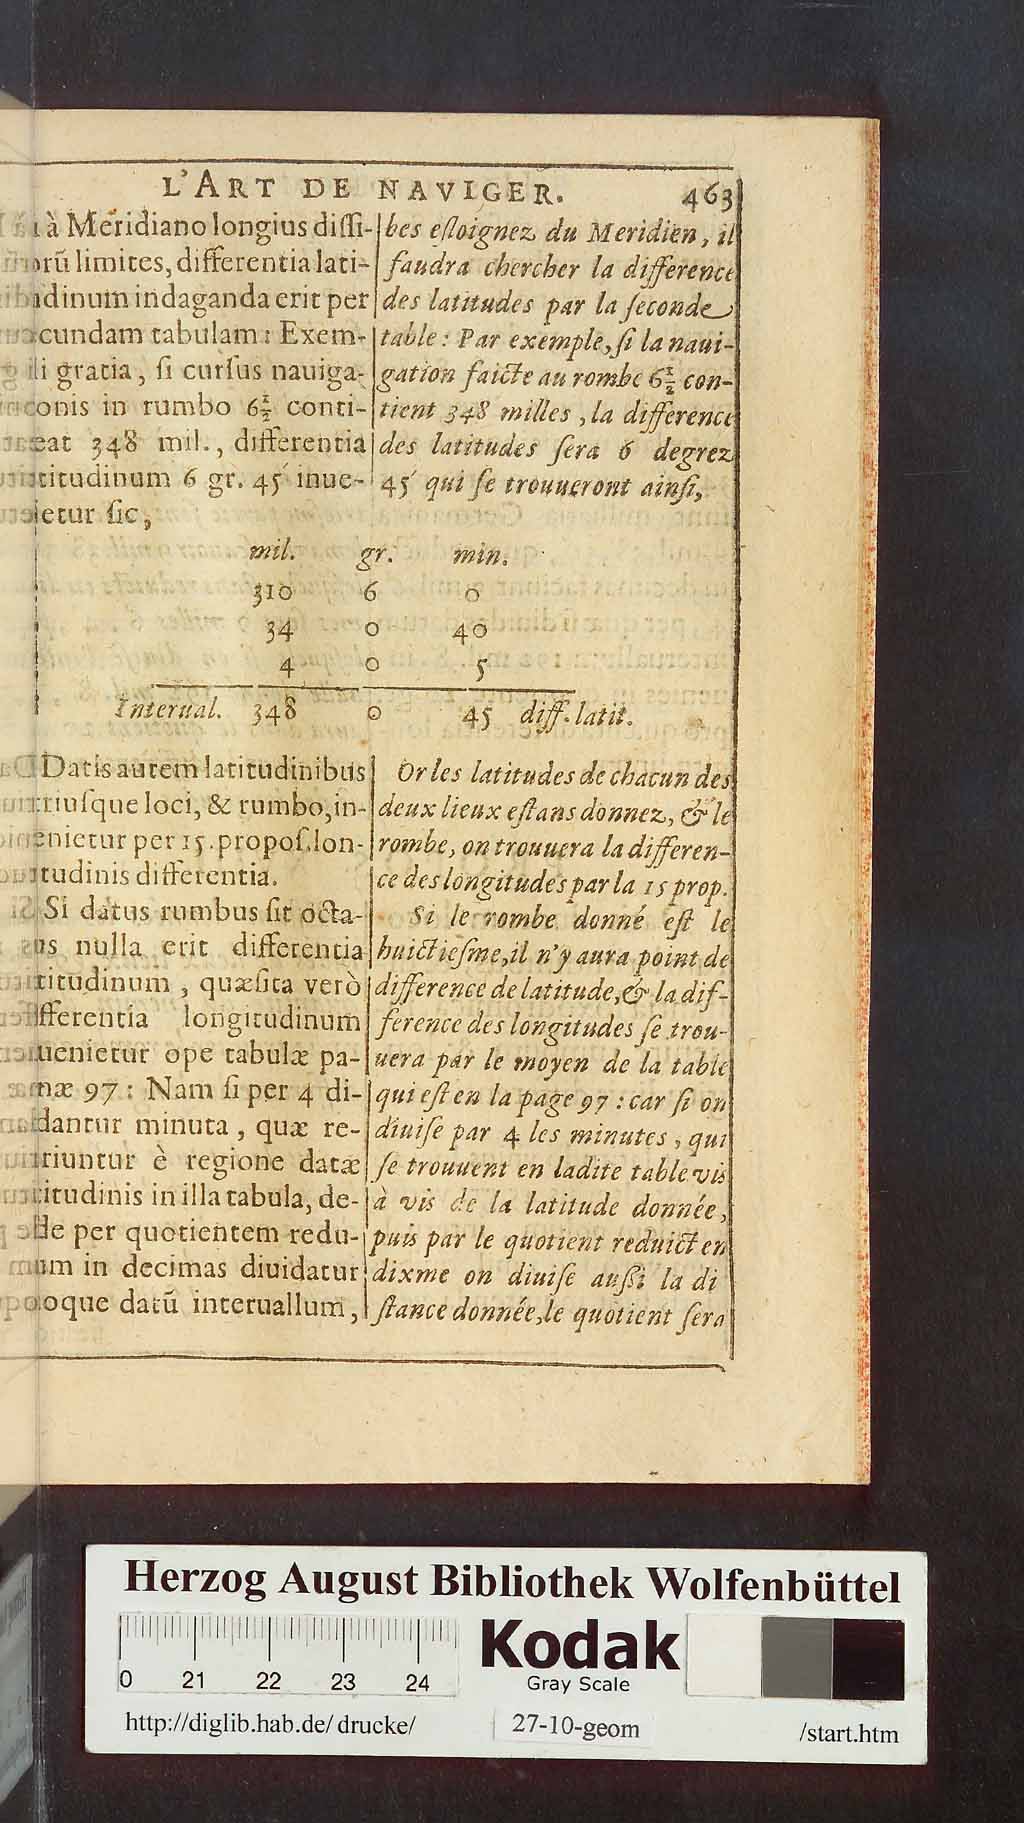 L'ART DE NAVIGER. 463
à Meridiano longius dissi-
orũ limites, differentia lati-
udinum indaganda erit per
cundam tabulam: Exem-
li gratia, si cursus nauiga-
onis in rumbo 6½ conti-
eat 348 mil., differentia
titudinum 6 gr. 45′ inue-
ietur sic,
bes esloignez du Meridien, il
faudra chercher la difference
des latitudes par la seconde
table: Par exemple, si la naui-
gation faicte au rombe 6½ con-
tient 348 milles, la difference
des latitudes sera 6 degrez
45′ qui se trouueront ainsi,
mil. gr. min.
310 6 0
34 0 40
4 0 5
Interual. 348 0 45 diff. latit.
Datis autem latitudinibus
triusque loci, & rumbo, in-
enietur per 15. propos. lon-
tudinis differentia.
Si datus rumbus sit octa-
us nulla erit differentia
titudinum, quæsita verò
fferentia longitudinum
uenietur ope tabulæ pa-
næ 97: Nam si per 4 di-
dantur minuta, quæ re-
riuntur è regione datæ
titudinis in illa tabula, de-
de per quotientem redu-
um in decimas diuidatur
oque datũ interuallum,
Or les latitudes de chacun des
deux lieux estans donnez, & le
rombe, on trouuera la differen-
ce des longitudes par la 15 prop.
Si le rombe donné est le
huictiesme, il n'y aura point de
difference de latitude, & la dif-
ference des longitudes se trou-
uera par le moyen de la table
qui est en la page 97: car si on
diuise par 4 les minutes, qui
se trouuent en ladite table vis
à vis de la latitude donnée,
puis par le quotient reduict en
dixme on diuise aussi la di
stance donnée, le quotient sera
Herzog August Bibliothek Wolfenbüttel
0 21 22 23 24
Kodak
Gray Scale
http://diglib.hab.de/drucke/ 27-10-geom /start.htm